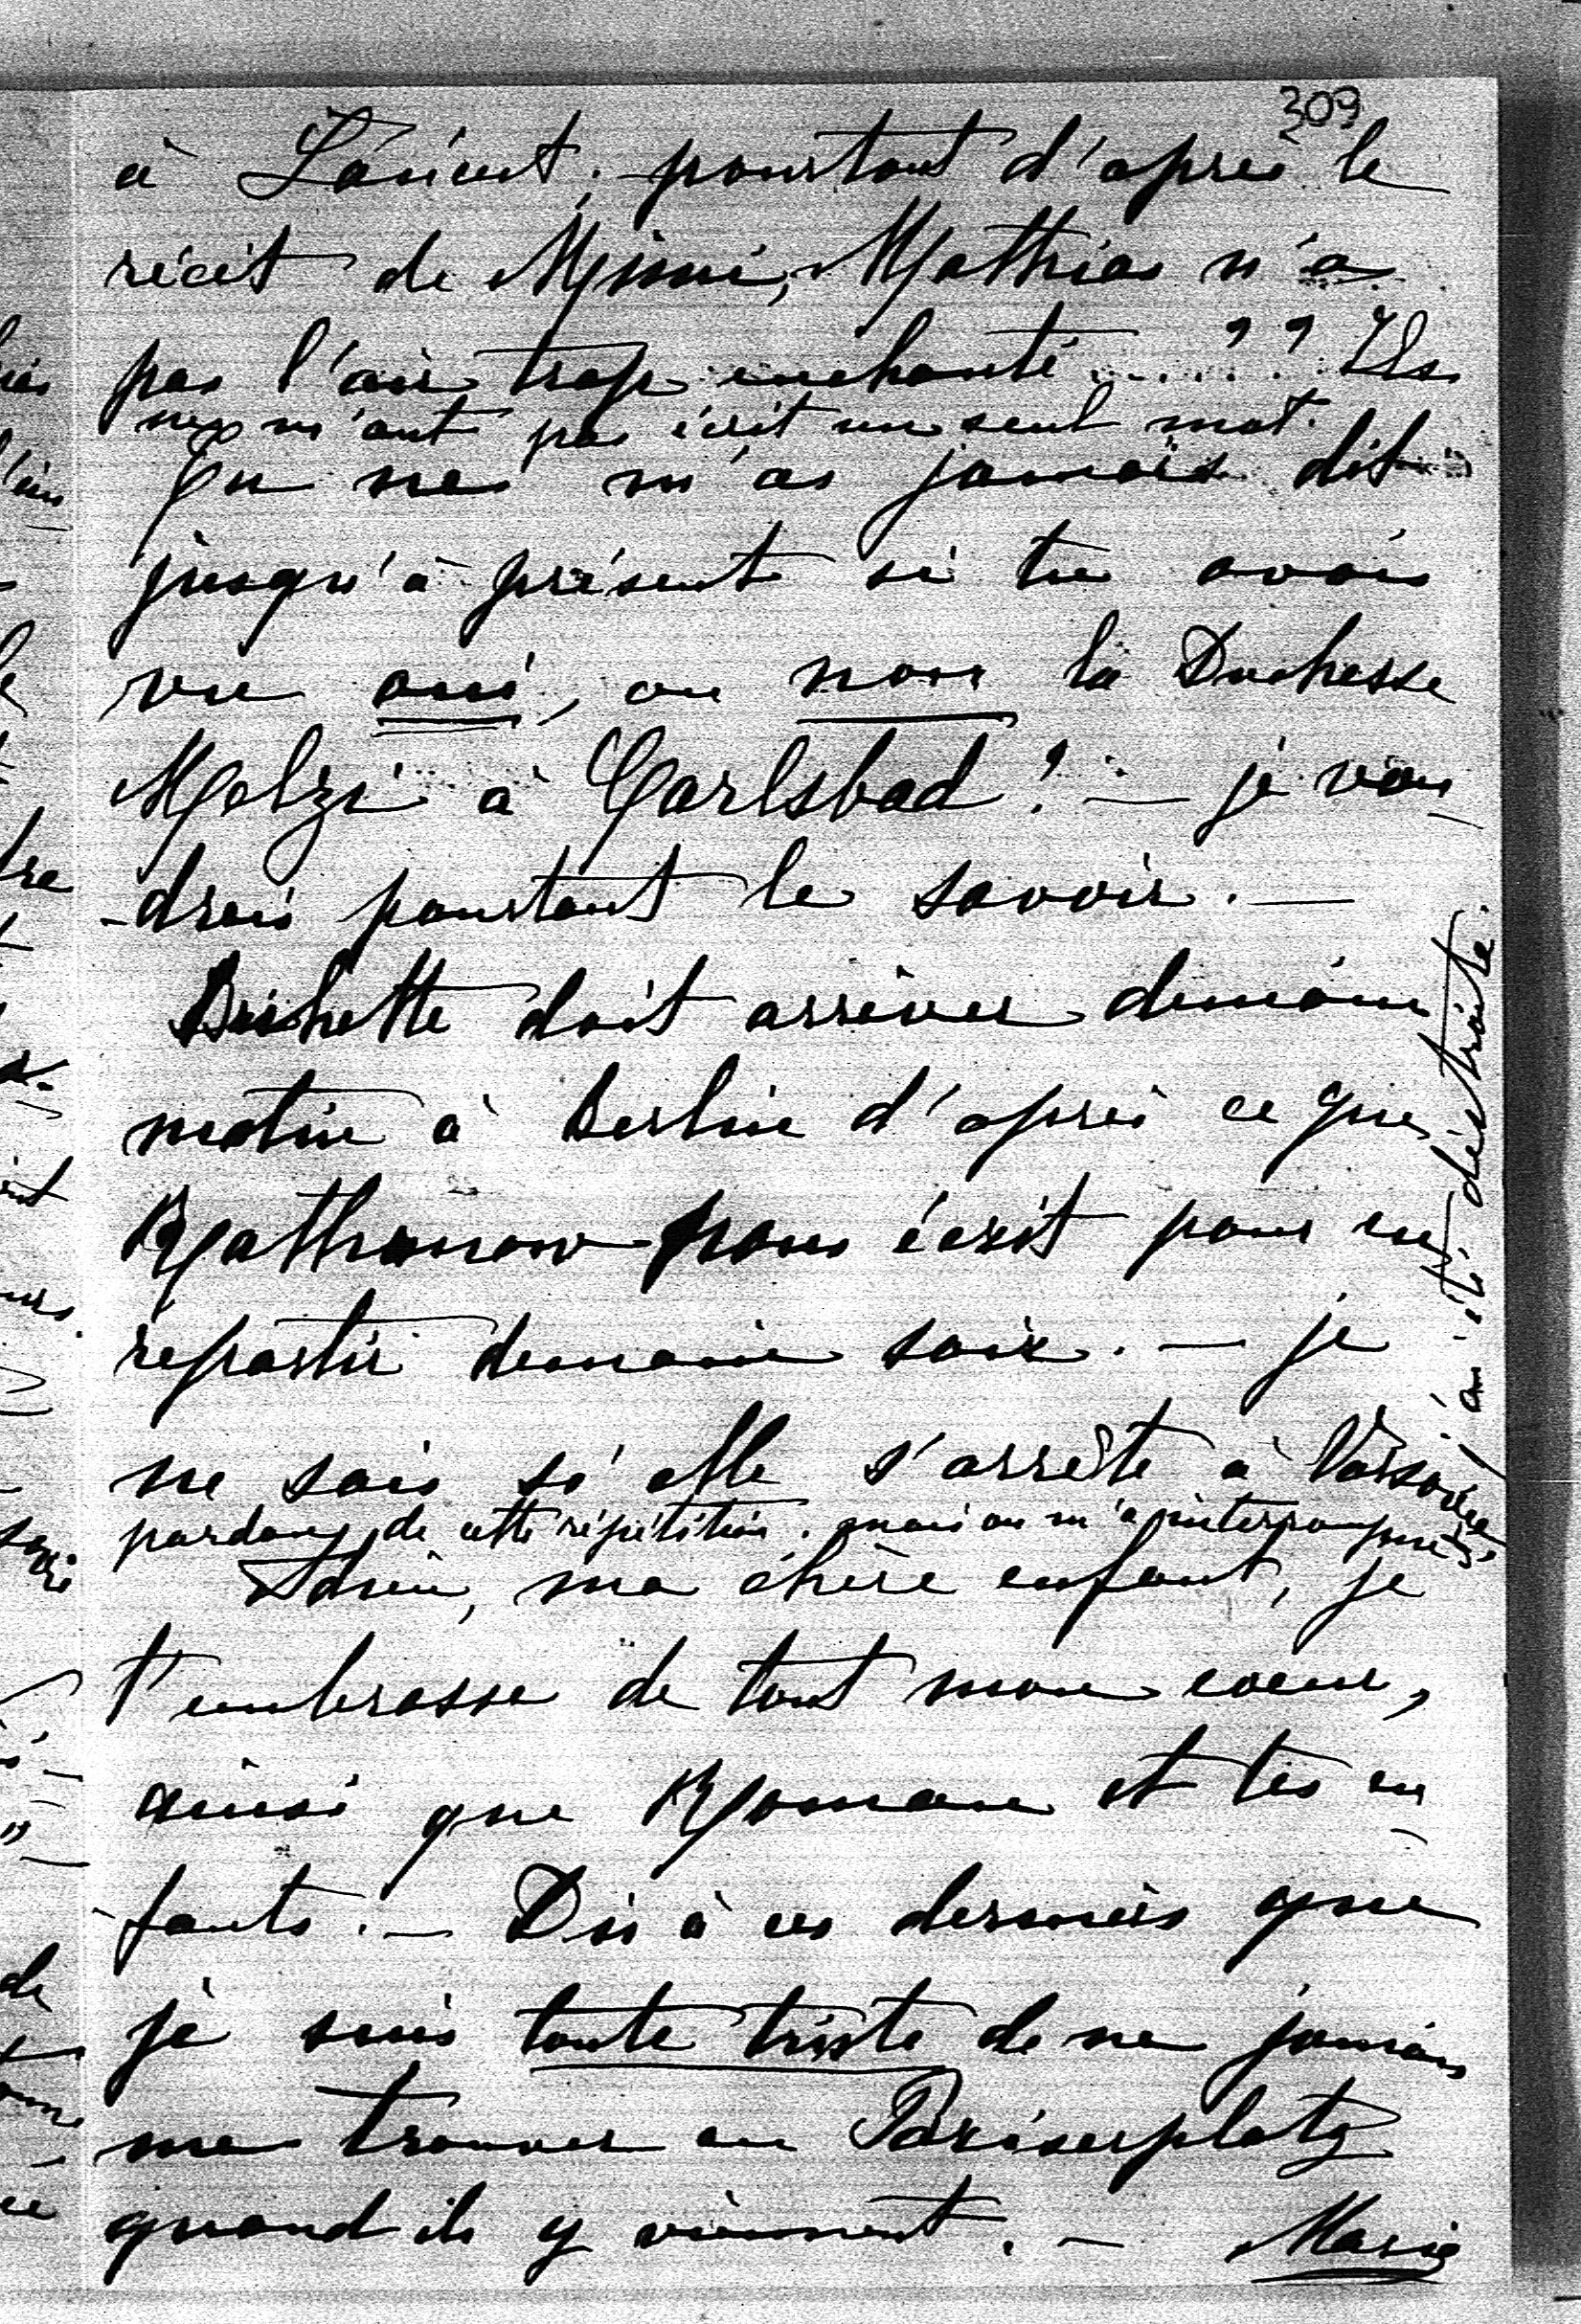 309
à Łancut; pourtant d'après le
récit de Mimi, Mathias n'a
pas l'air trop enchanté.....?? Ils
ne m'ont pas écrit un seul mot.
Tu ne m'as jamais dit
jusqu'à présent si tu avais
vu oui, ou non la Duchesse
Melzi à Carlsbad? — je vou
-drais pourtant le savoir. —
Bichette doit arriver demain
matin à Berlin d'après ce que
Rathenow nous écrit pour en
repartir demain soir. — je
ne sais si elle s'arrête à Varsovie
pardon de cette répétition. mais on m'a interrompue
et j'ai été distraite.
Adieu, ma chère enfant, je
t'embrasse de tout mon coeur,
ainsi que Roman et tes en
-fants. — Dis à ces derniers que
je suis toute triste de ne jamais
me trouver au Pariserplatz
quand ils y viennent. — Marie